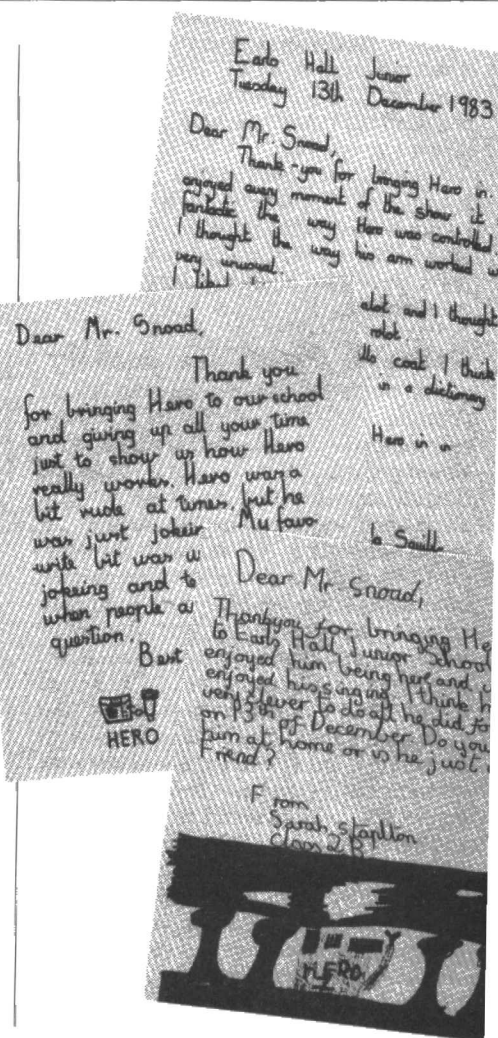 Earls Hall Junior
Tuesday 13th December 1983
Dear Mr. Snoad,
Thank-you for bringing Hero in.
enjoyed every moment of the show it
fantastic the way Hero was controlled.
I thought the way his arm worked w
very unusual.
I liked
alot and I thought
robot
coat, I think
in a dictionary
Hero in
Dear Mr. Snoad,
Thank you
for bringing Hero to our school
and giving up all your time
just to show us how Hero
really works. Hero was a
bit rude at times, but he
was just jokeir
My favo
write bit was w
jokeing and te
when people a
question.
Best
HERO
Dear Mr Snoad,
Thankyou for bringing He
to Earls Hall Junior School
enjoyed him being here and
enjoyed his singing. I think h
very clever to do all he did fo
on 13th of December. Do you
him at home or is he just
Friend?
From
Sarah Staplton
Class 2 B
HERO